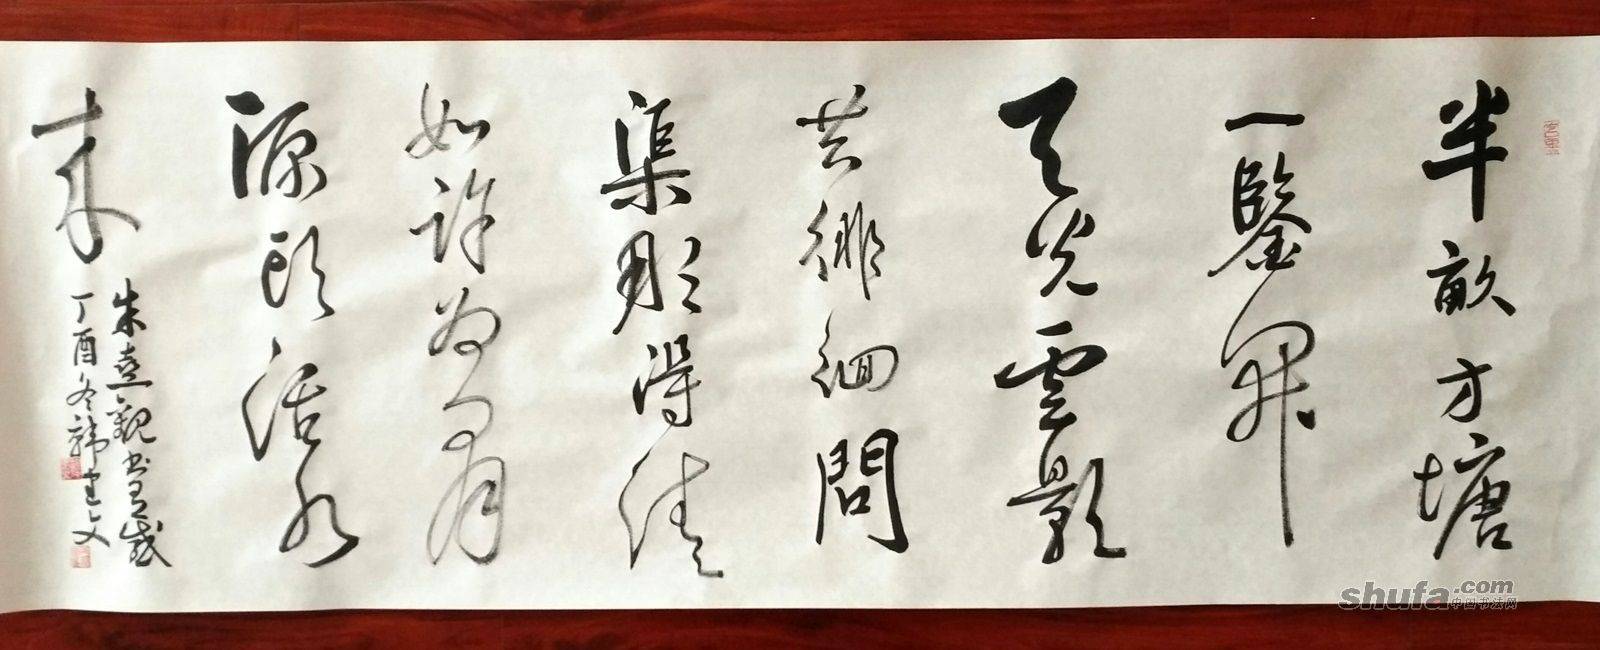 半畝方塘
一鑒開
天光雲影
共徘徊問
渠那得清
如許為有
源頭活水
来
朱熹觀书有感
丁酉冬韓建文
shufa.com
中国书法网